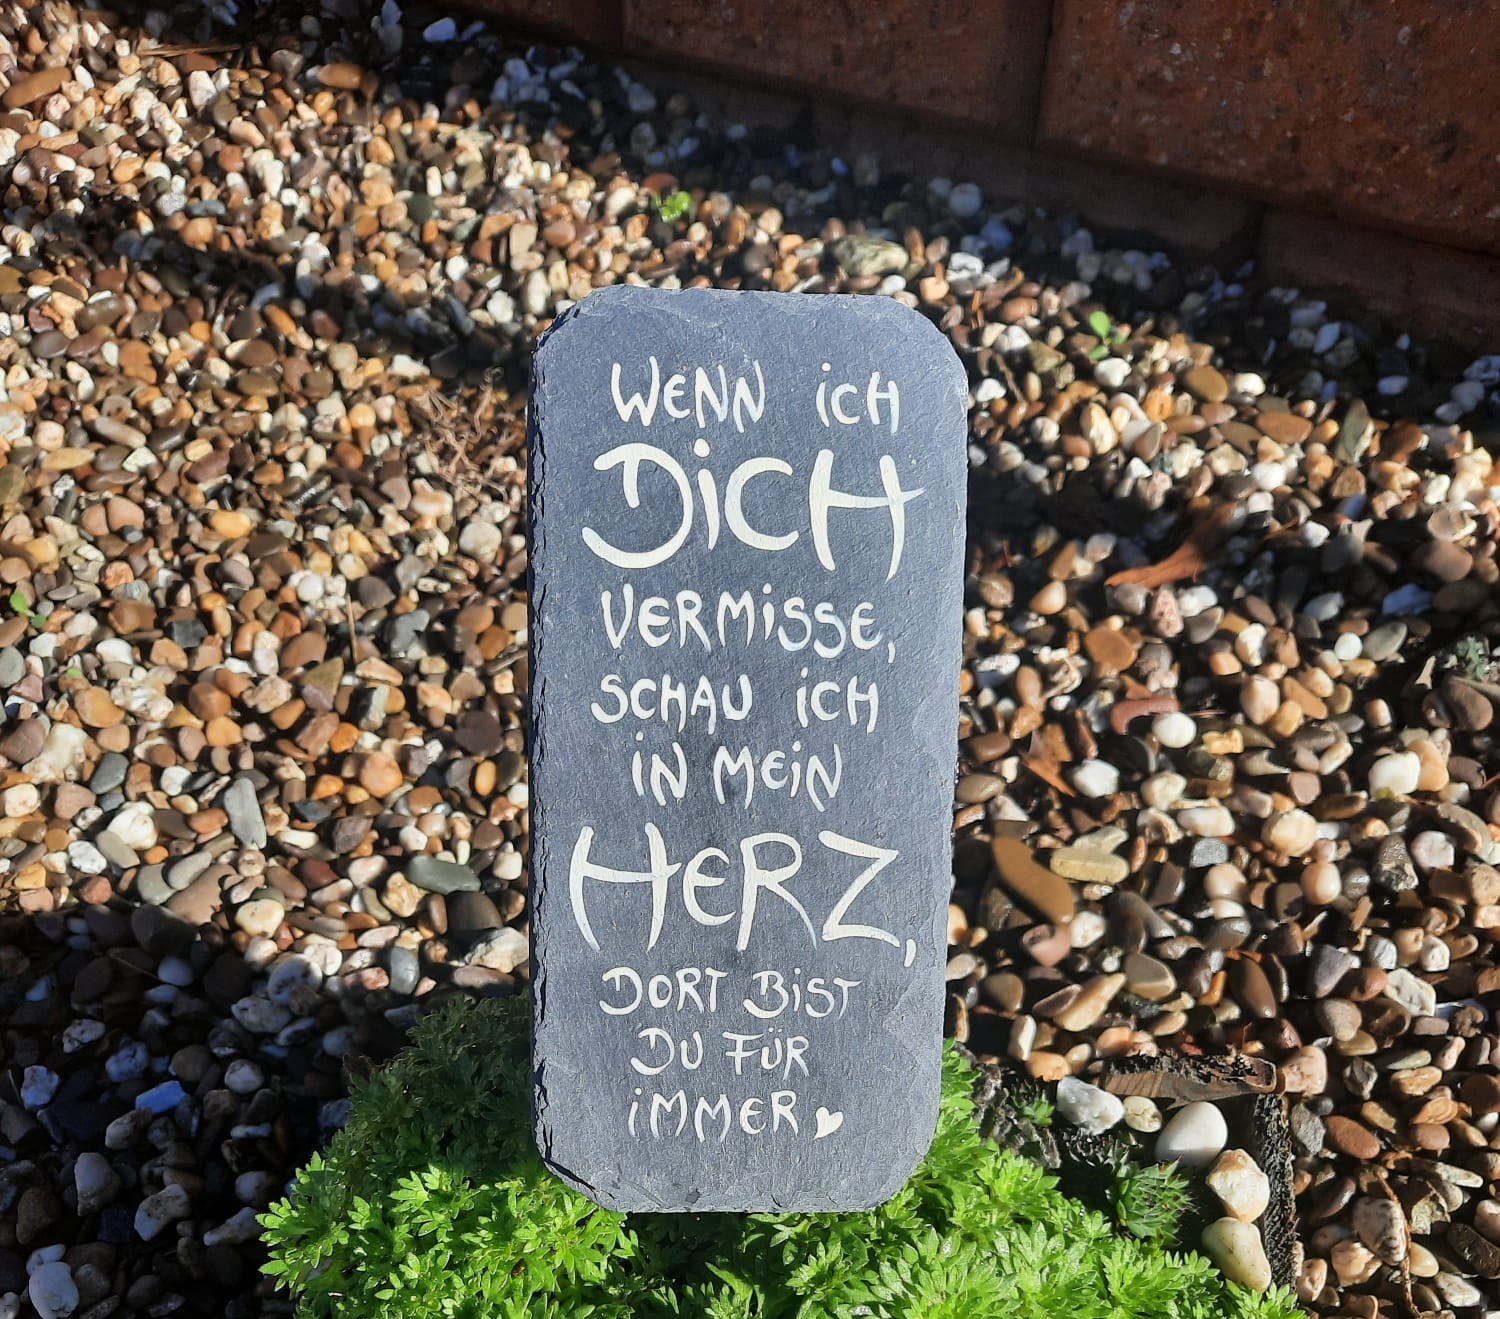 WENN iCH
DiCH
VERMiSSE,
SCHAU iCH
iN MEiN
HERZ,
DORT BiST
DU FÜR
iMMER